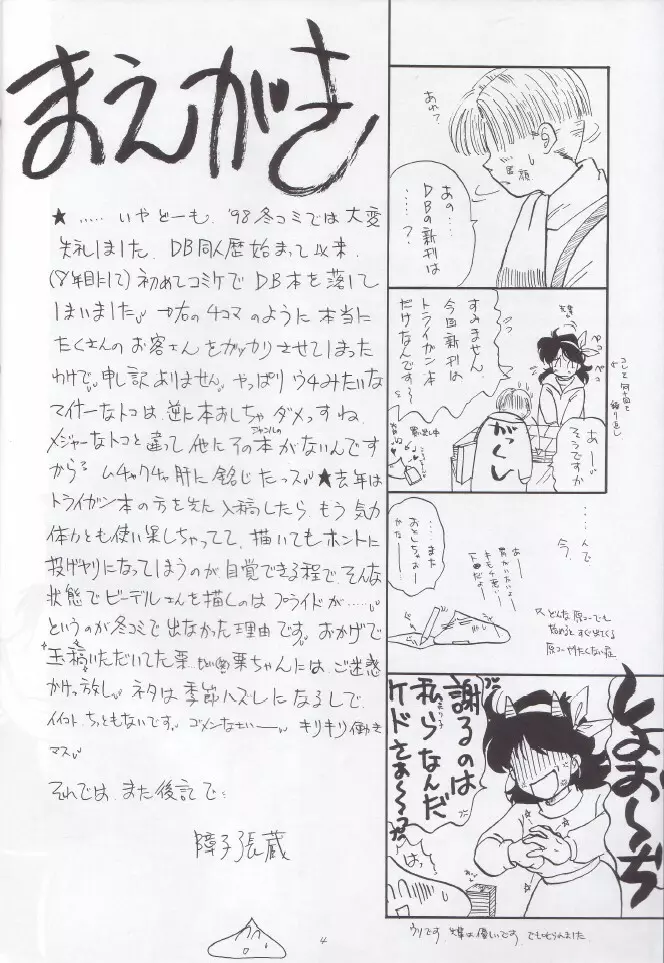 まえがき
★ ‥‥‥ いやどーも、'98冬コミでは大変
失礼しました。DB同人歴始まって以来、
(8年目にして) 初めてコミケでDB本を落して
しまいました。→右の4コマのように本当に
たくさんのお客さんをガッカリさせてしまった
わけで。申し訳ありません。やっぱりウチみたいな
マイナーなトコは、逆に本おしちゃダメっすね。
メジャーなトコと違って他にそのジャンルの本がないんです
から。ムチャクチャ肝に銘じたっス。★去年は
トライガン本の方を先に入稿したら、もう気力
体力とも使い果しちゃってて、描いてもホントに
投げヤリになってしまうのが自覚できる程で、そんな
状態でビーデルさんを描くのはプライドが‥‥‥。
というのが冬コミで出なかった理由です。おかげで
玉稿いただいてた栗ちゃんには、ご迷惑
かけっ放し。ネタは季節ハズレになるしで、
イイコトちっともないです。ゴメンなさいー。キリキリ働き
マス。
それでは、また後記で‥
障子張蔵
4
あれ?
あの‥‥
DBの新刊は
‥‥‥?
すみません、
今回新刊は
トライガン本
だけなんです〜
ペコ
ペコ
あー
そうですか
がっくし
コレを何十回と
繰り返し
‥‥んで
今、
‥‥また
おとしちゃおー
かなー
あー
胃がいたいよー
キモチ悪いー
どんな原コーでも
始めるとすぐ出てくる
原コーやりたくない症
しょお〜ぢ
謝るのは
私らなんだ
ケドさぁ〜〜っ
はっ
ウソです。先輩は優しいです。でも叱られました。